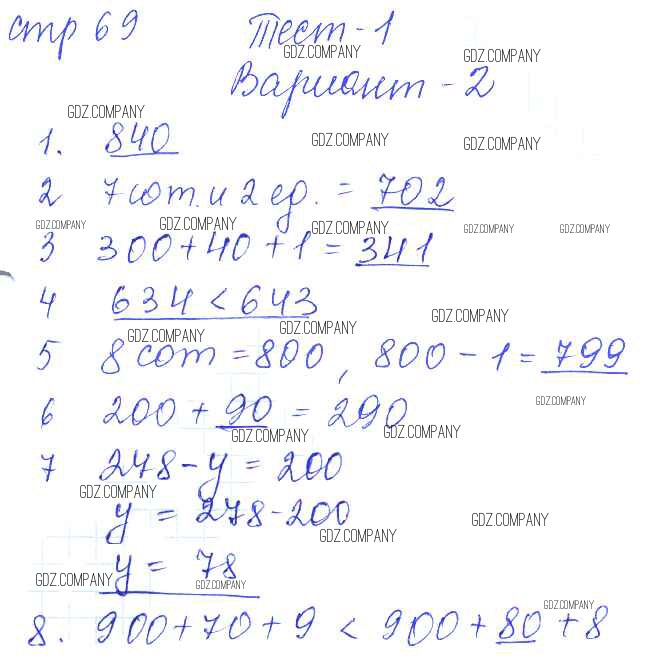 стр 69 Тест-1
GDZ.COMPANY GDZ.COMPANY
Вариант-2
GDZ.COMPANY
1. 840 GDZ.COMPANY GDZ.COMPANY
2 7 сот. и 2 ед. = 702
GDZ.COMPANY GDZ.COMPANY GDZ.COMPANY GDZ.COMPANY GDZ.COMPANY
3 300+40+1=341
4 634<643
GDZ.COMPANY GDZ.COMPANY GDZ.COMPANY
5 8 сот=800, 800-1=799
GDZ.COMPANY
6 200+90=290
GDZ.COMPANY GDZ.COMPANY
7 278-у=200
GDZ.COMPANY
у=278-200
GDZ.COMPANY GDZ.COMPANY
у=78
GDZ.COMPANY GDZ.COMPANY
GDZ.COMPANY
8. 900+70+9<900+80+8